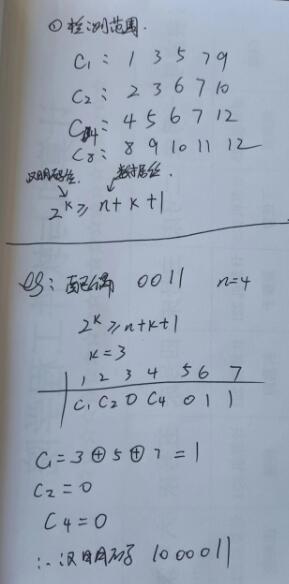 ① 检测范围.
C₁: 1 3 5 7 9
C₂: 2 3 6 7 10
C₄: 4 5 6 7 12
C₈: 8 9 10 11 12
汉明码位. 数据位.
2ᴷ ≥ n + k + 1
eg: 配偶 0011 n=4
2ᴷ ≥ n+k+1
k=3
1 2 3 4 5 6 7
C₁ C₂ 0 C₄ 0 1 1
C₁ = 3 ⊕ 5 ⊕ 7 = 1
C₂ = 0
C₄ = 0
∴ 汉明码为 1000011